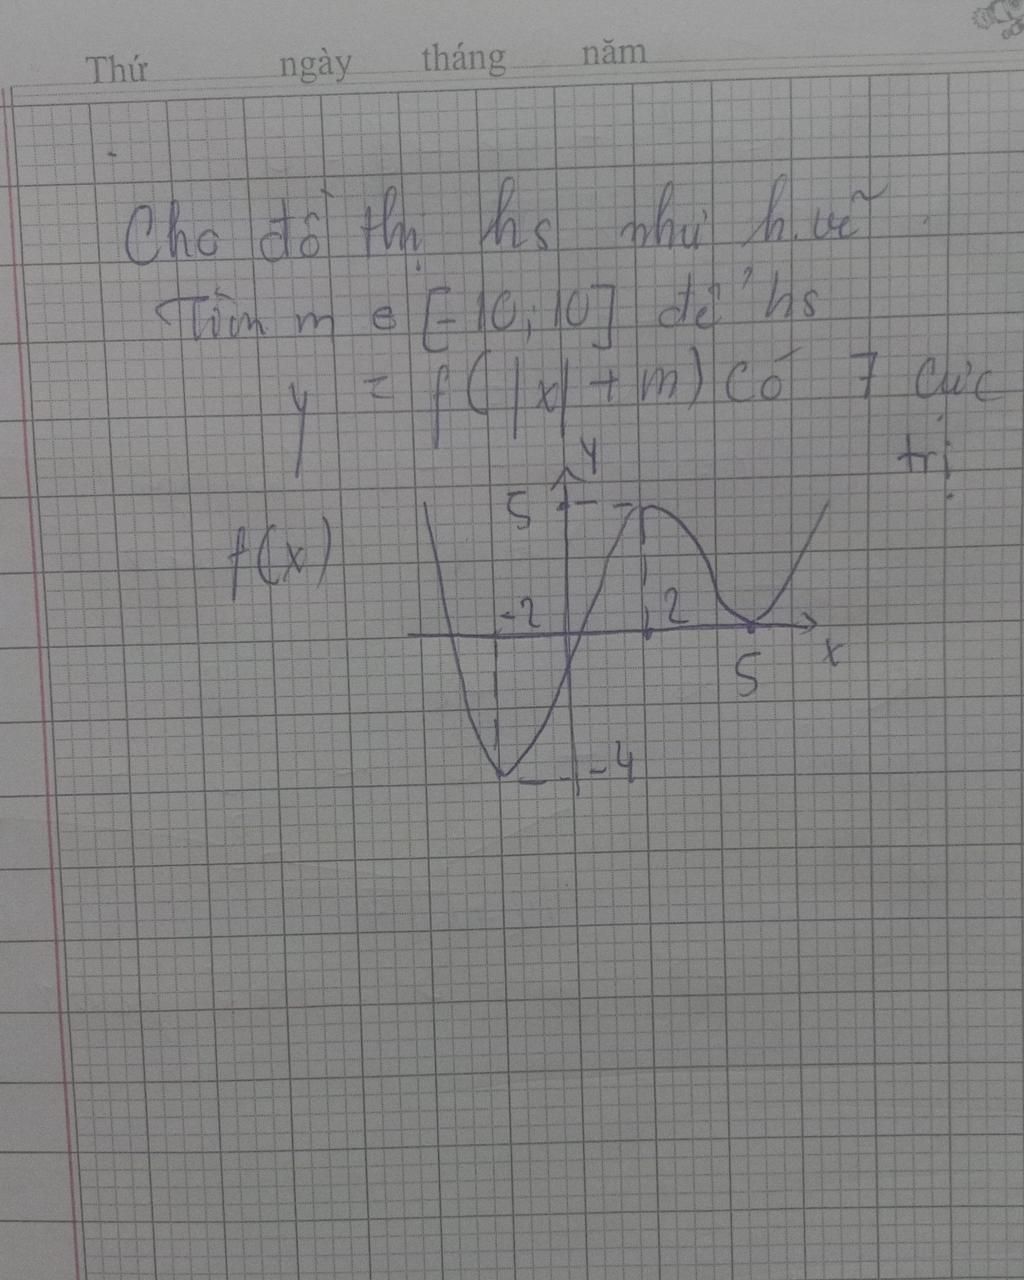 Thứ ngày tháng năm
Cho đồ thị hs như h.vẽ.
Tìm m ∈ [-10; 10] để hs
y = f(|x| + m) có 7 cực
trị
y
5
f(x)
-2
2
x
5
-4